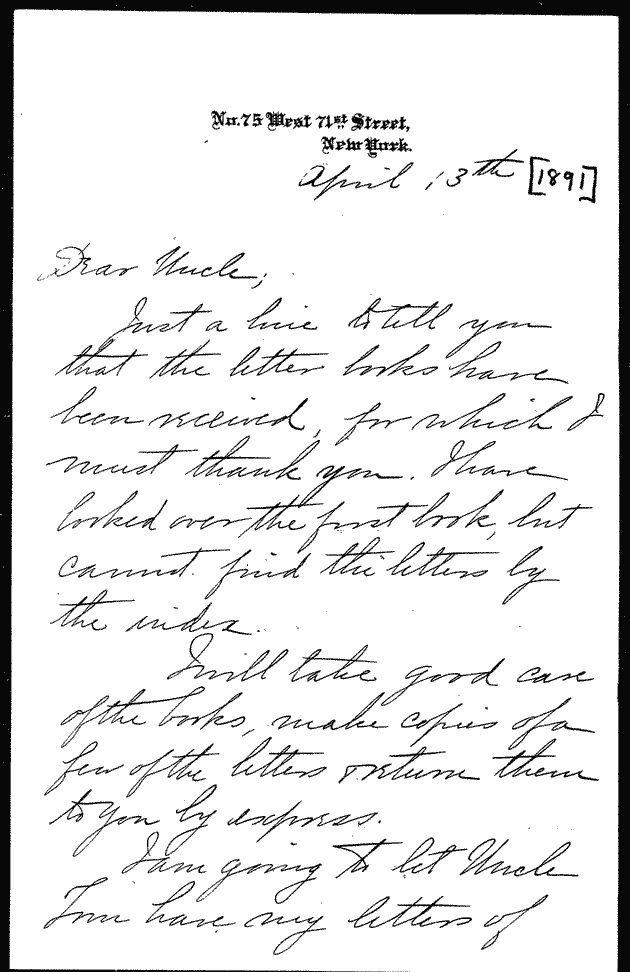 No. 75 West 71st Street,
New York.
April 13th [1891]
Dear Uncle;
Just a line to tell you
that the letter books have
been received, for which I
must thank you. I have
looked over the first book, but
cannot find the letters by
the index.
I will take good care
of the books, make copies of a
few of the letters & return them
to you by express.
I am going to let Uncle
Tom have my letters of